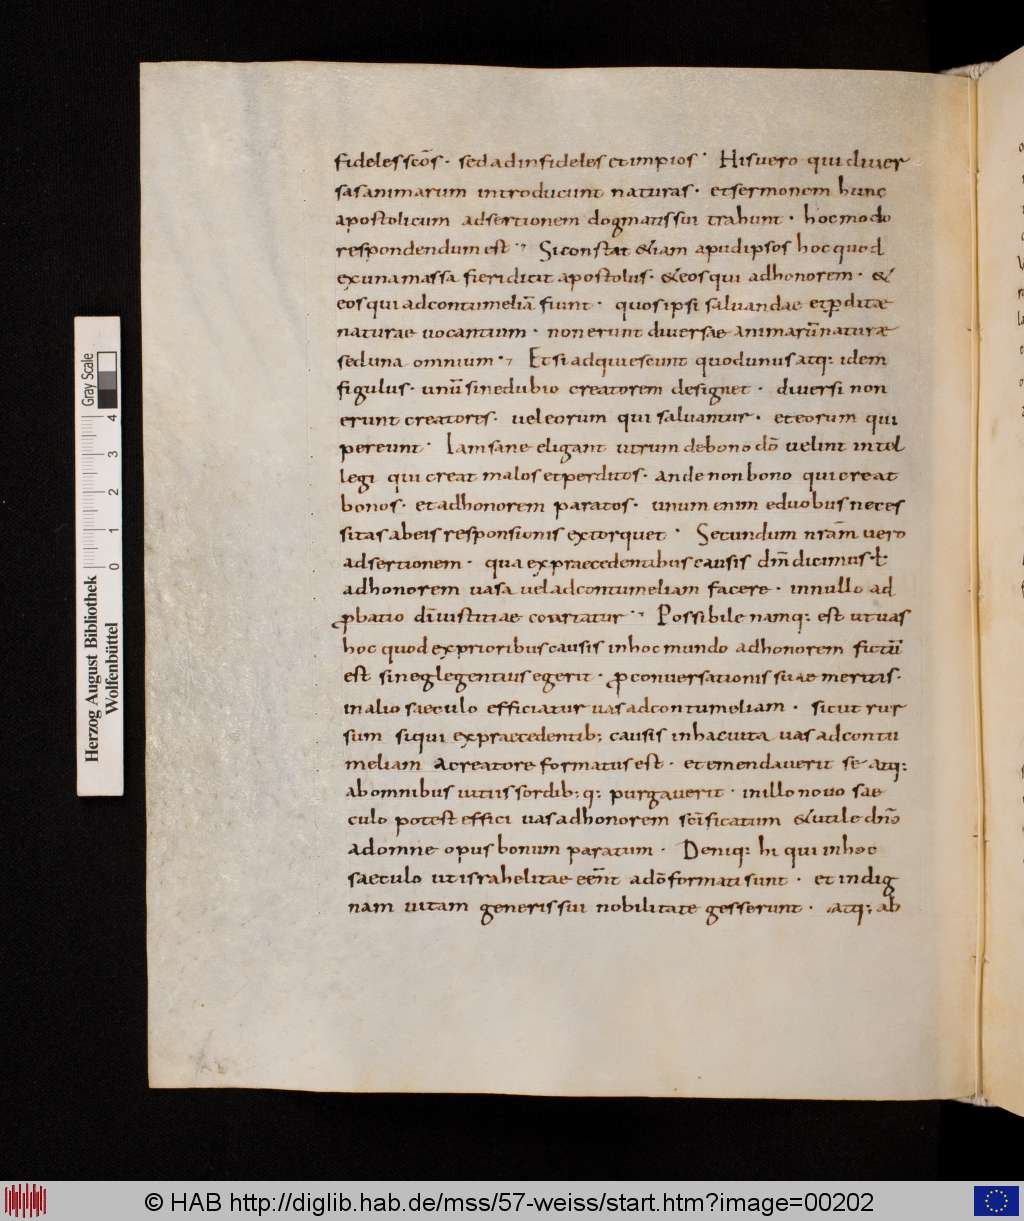 fidelesscōs · sedadinfideles etimpios · Hisuero quidiuer
sasanimarum introducunt naturas · etsermonem hunc
apostolicum adsertionem dogmatissui trahunt · hocmodo
respondendum est · Siconstat &iam apudipsos hoc quod
exunamassa fieridicit apostolus · &eos qui adhonorem · &
eos qui adcontumeliā fiunt · quosipsi saluandae etꝑditae
naturae uocantium · nonerunt diuersae animarū naturae
seduna omnium · Et si adquiescunt quodunus atq: idem
figulus · unū sinedubio creatorem designet · diuersi non
erunt creatores · ueleorum qui saluantur · eteorum qui
pereunt · Iamsane eligant utrum debono dō uelint intel
legi qui creat malos etperditos · ande nonbono qui creat
bonos · etadhonorem paratos · unum enim eduobus neces
sitas abeis responsionis extorquet · Secundum nr̄am uero
adsertionem · qua expraecedentibus causis dn̄m dicimus ł
adhonorem uasa uel adcontumeliam facere · innullo ad
ꝓbatio dīiustitiae coartatur · Possibile namq: est utuas
hoc quod exprioribus causis inhoc mundo adhonorem fictū
est sineglegentius egerit · ꝓconuersationis suae meritis ·
inalio saeculo efficiatur uas adcontumeliam · sicut rur
sum siqui expraecedentib; causis inhacuita uas adcontu
meliam acreatore formatus est · etemendauerit se atq:
abomnibus uitiis sordib; q: purgauerit · inillo nouo sae
culo potest effici uas adhonorem scīficatum &utile dn̄o
adomne opus bonum paratum · Deniq: hi qui inhoc
saeculo utisrahelitae eēnt adō formati sunt · et indig
nam uitam generis sui nobilitate gesserunt · atq: ab
Herzog August Bibliothek
Wolfenbüttel
0 1 2 3 4
Gray Scale
© HAB http://diglib.hab.de/mss/57-weiss/start.htm?image=00202